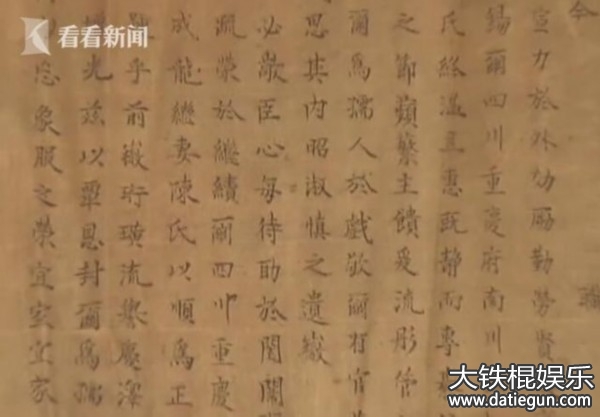 看看新闻
KANKANEWS
令
宣力於外勤勞賢
錫爾四川重慶府南川
氏終溫且惠既靜而專
之節蘋蘩主饋爰流彤管
爾爲孺人於戲敬爾有官
思其內昭淑慎之遺徽
必敬臣心每待助於閨闈
疏榮於繼續爾四川重慶
成龍繼妻陳氏以順爲正
乎前徽珩璜流譽慶澤
光茲以覃恩封爾爲孺
象服之榮宜室宜家
大铁棍娱乐
www.datiegun.com